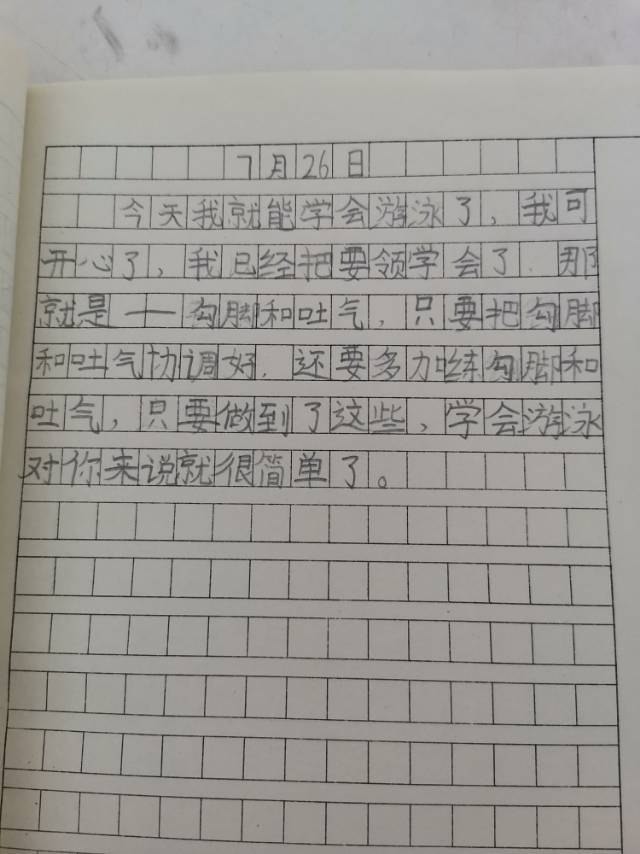 7月26日
今天我就能学会游泳了，我可
开心了，我已经把要领学会了.那
就是一勾脚和吐气，只要把勾脚
和吐气协调好.还要多加练勾脚和
吐气，只要做到了这些，学会游泳
对你来说就很简单了。